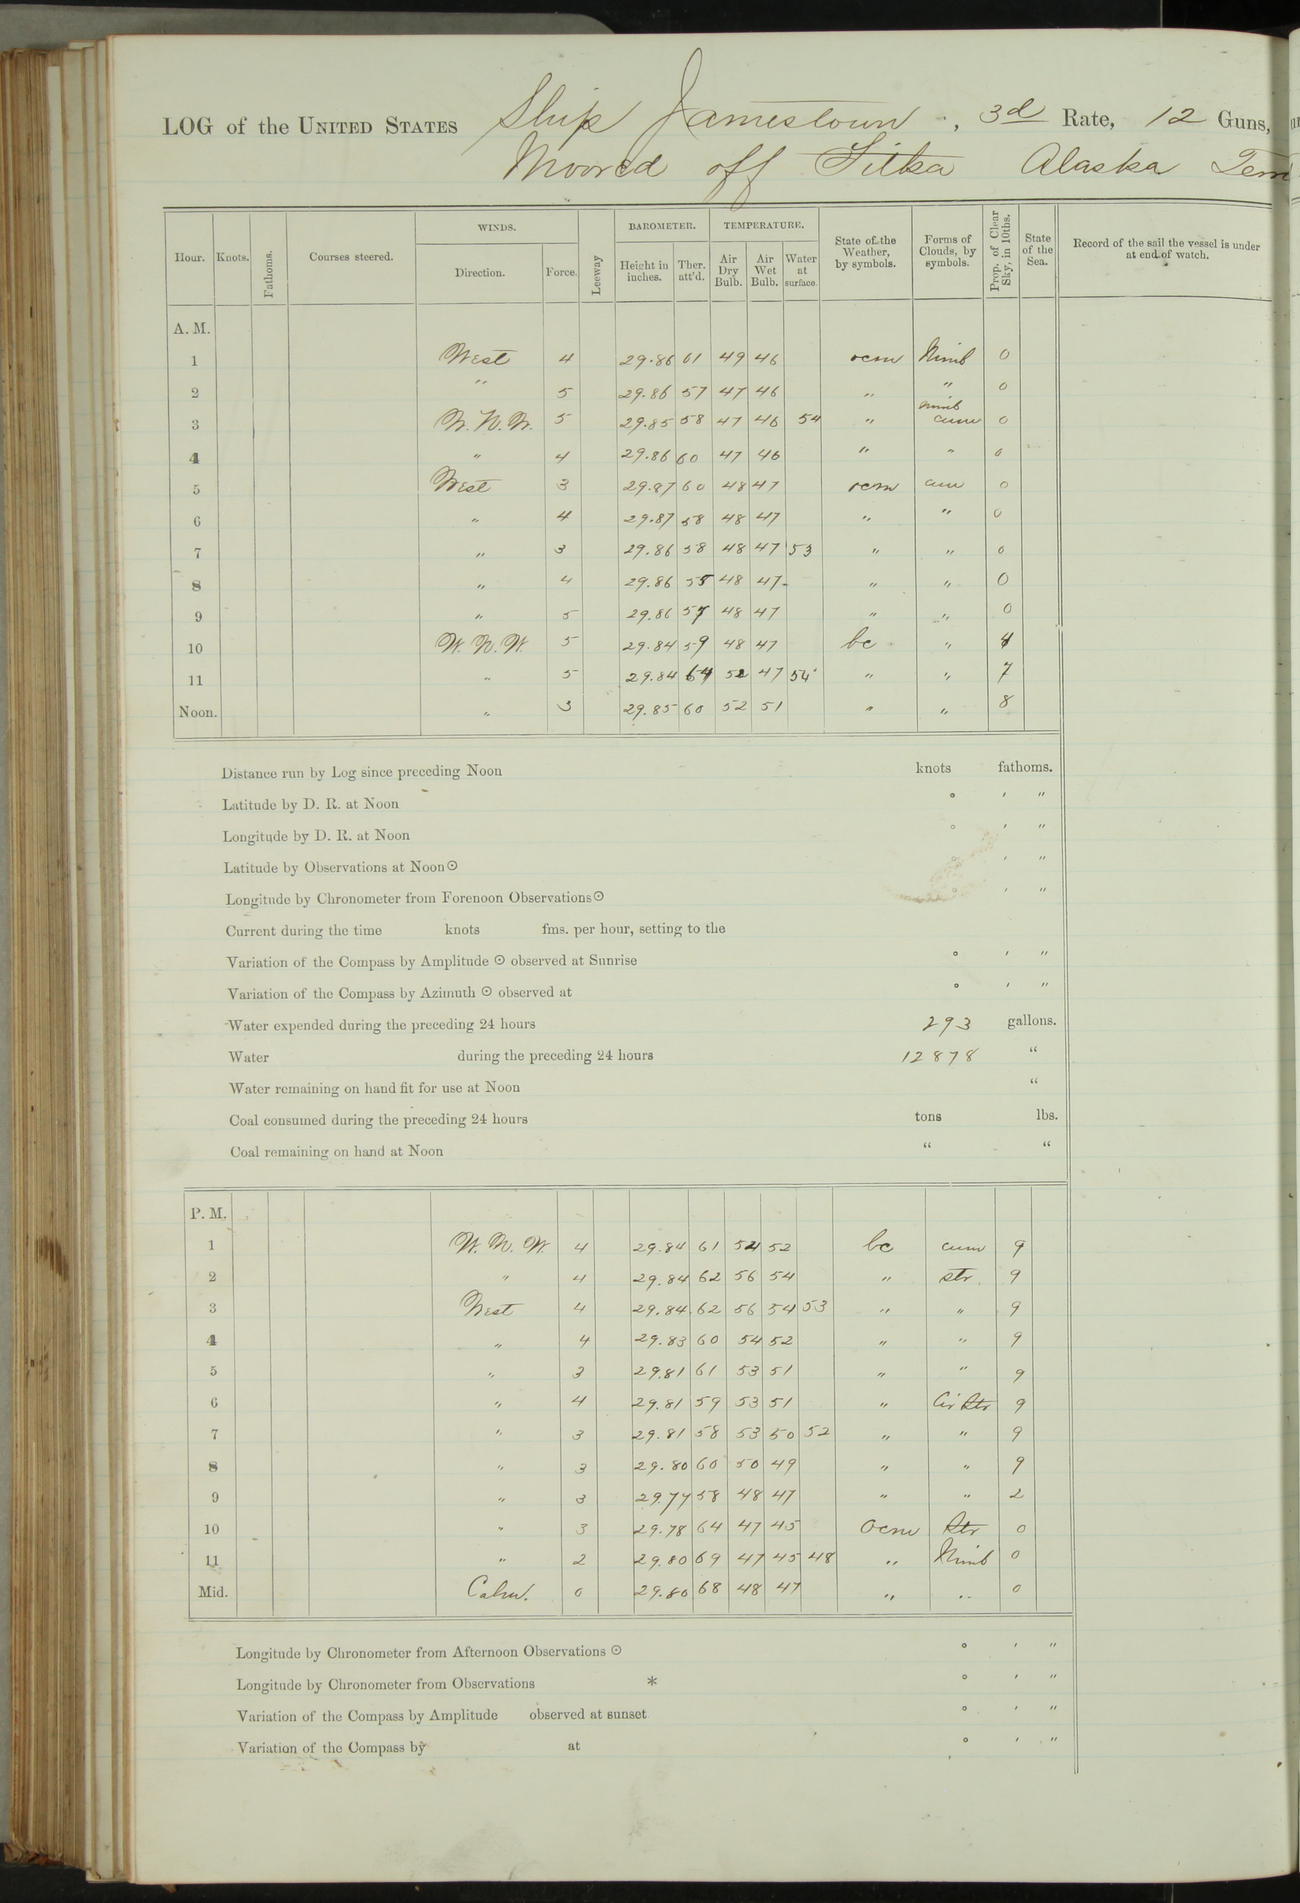 LOG of the UNITED STATES Ship Jamestown, 3d Rate, 12 Guns,
Moored off Sitka Alaska Terri
Hour. Knots. Fathoms. Courses steered. WINDS. Direction. Force. Leeway BAROMETER. Height in inches. Ther. att'd. TEMPERATURE. Air Dry Bulb. Air Wet Bulb. Water at surface. State of the Weather, by symbols. Forms of Clouds, by symbols. Prop. of Clear Sky, in 10ths. State of the Sea. Record of the sail the vessel is under at end of watch.
A. M.
1 West 4 29.86 61 49 46 ocm Nimb 0
2 " 5 29.86 57 47 46 " " 0
3 W.N.W. 5 29.85 58 47 46 54 " nimb cum 0
4 " 4 29.86 60 47 46 " " 0
5 West 3 29.87 60 48 47 ocm cum 0
6 " 4 29.87 58 48 47 " " 0
7 " 3 29.86 58 48 47 53 " " 0
8 " 4 29.86 55 48 47 " " 0
9 " 5 29.86 57 48 47 " " 0
10 W.N.W. 5 29.84 59 48 47 bc " 4
11 " 5 29.84 64 52 47 54 " " 7
Noon. " 3 29.85 60 52 51 " " 8
Distance run by Log since preceding Noon knots fathoms.
Latitude by D. R. at Noon ° ′ ″
Longitude by D. R. at Noon ° ′ ″
Latitude by Observations at Noon ☉ ° ′ ″
Longitude by Chronometer from Forenoon Observations ☉ ° ′ ″
Current during the time knots fms. per hour, setting to the
Variation of the Compass by Amplitude ☉ observed at Sunrise ° ′ ″
Variation of the Compass by Azimuth ☉ observed at ° ′ ″
Water expended during the preceding 24 hours 293 gallons.
Water during the preceding 24 hours 12878 "
Water remaining on hand fit for use at Noon "
Coal consumed during the preceding 24 hours tons lbs.
Coal remaining on hand at Noon " "
P. M.
1 W.N.W. 4 29.84 61 54 52 bc cum 9
2 " 4 29.84 62 56 54 " str. 9
3 West 4 29.84 62 56 54 53 " " 9
4 " 4 29.83 60 54 52 " " 9
5 " 3 29.81 61 53 51 " " 9
6 " 4 29.81 59 53 51 " Cir Str 9
7 " 3 29.81 58 53 50 52 " " 9
8 " 3 29.80 60 50 49 " " 9
9 " 3 29.79 58 48 47 " " 2
10 " 3 29.78 64 47 45 Ocm Str 0
11 " 2 29.80 69 47 45 48 " Nimb 0
Mid. Calm. 0 29.80 68 48 47 " " 0
Longitude by Chronometer from Afternoon Observations ☉ ° ′ ″
Longitude by Chronometer from Observations * ° ′ ″
Variation of the Compass by Amplitude observed at sunset ° ′ ″
Variation of the Compass by at ° ′ ″